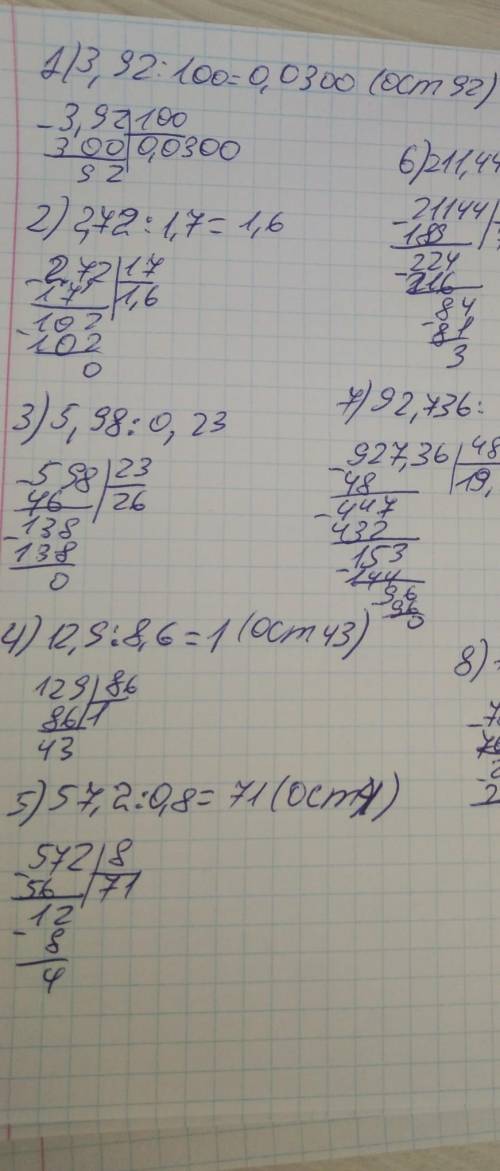 1) 3,92:100=0,0300 (ост 92)
3,92 100
300 0,0300
92
2) 2,72:1,7=1,6
272 17
17 1,6
102
102
0
3) 5,98:0,23
598 23
46 26
138
138
0
4) 12,9:8,6=1 (ост 43)
129 86
86 1
43
5) 57,2:0,8=71 (ост 4)
572 8
56 71
12
8
4
6) 211,44
21144
189
224
216
84
81
3
7) 92,736:
927,36 48
48 19,
447
432
153
144
96
96
0
8)